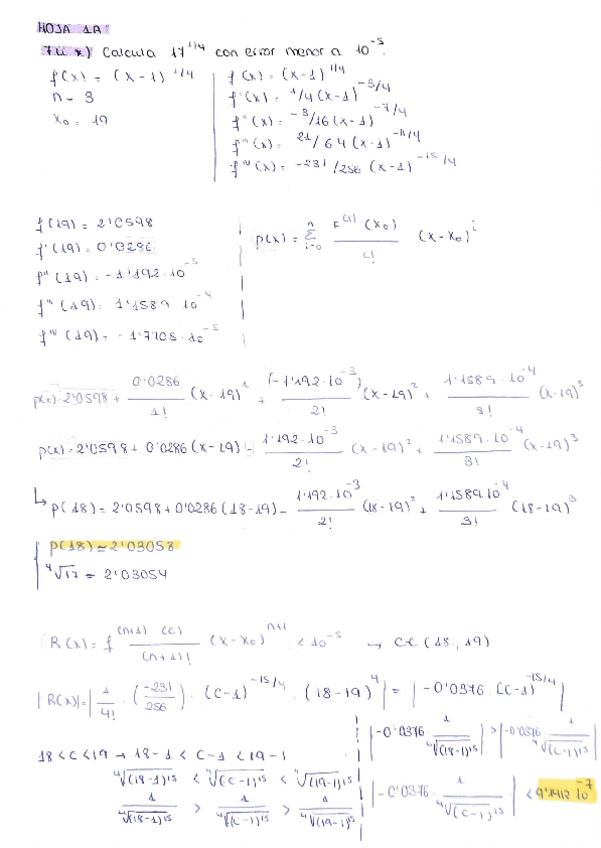 HOJA 1A:
7ii x) Calcula 17^1/4 con error menor a 10^-5.
f(x) = (x-1)^1/4
n = 3
x0 = 19
f(x) = (x-1)^1/4
f'(x) = 1/4 (x-1)^-3/4
f''(x) = -3/16 (x-1)^-7/4
f'''(x) = 21/64 (x-1)^-11/4
f^IV(x) = -231/256 (x-1)^-15/4
f(19) = 2'0598
f'(19) = 0'0286
f''(19) = -1'192·10^-5
f'''(19) = 1'1589 10^-4
f^IV(19) = -1'7705·10^-5
p(x) = Σ_{i=0}^{n} F^(i)(x0)/i! (x-x0)^i
p(x) = 2'0598 + 0'0286/1! (x-19)^1 + (-1'192·10^-3)/2! (x-19)^2 + 1'1589·10^-4/3! (x-19)^3
p(x) = 2'0598 + 0'0286 (x-19) - 1'192·10^-3/2! (x-19)^2 + 1'1589·10^-4/3! (x-19)^3
↳ p(18) = 2'0598 + 0'0286 (18-19) - 1'192·10^-3/2! (18-19)^2 + 1'1589 10^-4/3! (18-19)^3
p(18) = 2'03058
⁴√17 = 2'03054
R(x) = f^(n+1)(c)/(n+1)! (x-x0)^n+1 < 10^-5 → c ∈ (18, 19)
|R(x)| = |1/4! · (-231/256) · (c-1)^-15/4 · (18-19)^4| = |-0'0376 · (c-1)^-15/4|
18 < c < 19 → 18-1 < c-1 < 19-1
⁴√(18-1)^15 < ⁴√(c-1)^15 < ⁴√(19-1)^15
1/⁴√(18-1)^15 > 1/⁴√(c-1)^15 > 1/⁴√(19-1)^15
|-0'0376 · 1/⁴√(18-1)^15| > |-0'0376 · 1/⁴√(c-1)^15|
|-0'0376 · 1/⁴√(c-1)^15| < 9'1412 10^-7